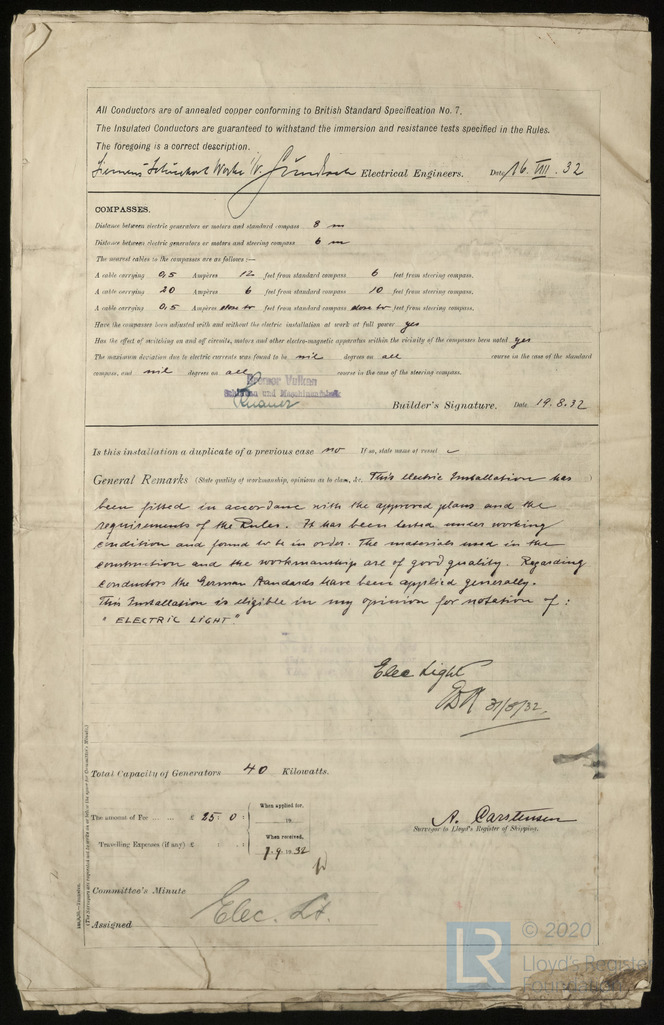 All Conductors are of annealed copper conforming to British Standard Specification No. 7.
The Insulated Conductors are guaranteed to withstand the immersion and resistance tests specified in the Rules.
The foregoing is a correct description.
Siemens Electrical Engineers. Date 16. VIII. 32
COMPASSES.
Distance between electric generators or motors and standard compass 8 m
Distance between electric generators or motors and steering compass 6 m
The nearest cables to the compasses are as follows :—
A cable carrying 0,5 Ampères 12 feet from standard compass 6 feet from steering compass.
A cable carrying 20 Ampères 6 feet from standard compass 10 feet from steering compass.
A cable carrying 0,5 Ampères close to feet from standard compass close to feet from steering compass.
Have the compasses been adjusted with and without the electric installation at work at full power yes
Has the effect of switching on and off circuits, motors and other electro-magnetic apparatus within the vicinity of the compasses been noted yes
The maximum deviation due to electric currents was found to be nil degrees on all course in the case of the standard
compass, and nil degrees on all course in the case of the steering compass.
Bremer Vulkan
Schiffbau und Maschinenfabrik
Builder's Signature. Date 19.8.32
Is this installation a duplicate of a previous case no If so, state name of vessel
General Remarks (State quality of workmanship, opinions as to class, &c. This electric Installation has
been fitted in accordance with the approved plans and the
requirements of the Rules. It has been tested under working
condition and found to be in order. The materials used in the
construction and the workmanship are of good quality. Regarding
conductors the German standards have been applied generally.
This Installation is eligible in my opinion for notation of :
" ELECTRIC LIGHT."
Elec Light
31/8/32
Total Capacity of Generators 40 Kilowatts.
The amount of Fee ... ... £ 25 : 0 :
When applied for,
19
Travelling Expenses (if any) £ : :
When received,
7.9.1932
A. Carstensen
Surveyor to Lloyd's Register of Shipping.
Committee's Minute
Assigned Elec. Lt.
LR © 2020
Lloyd's Register
Foundation